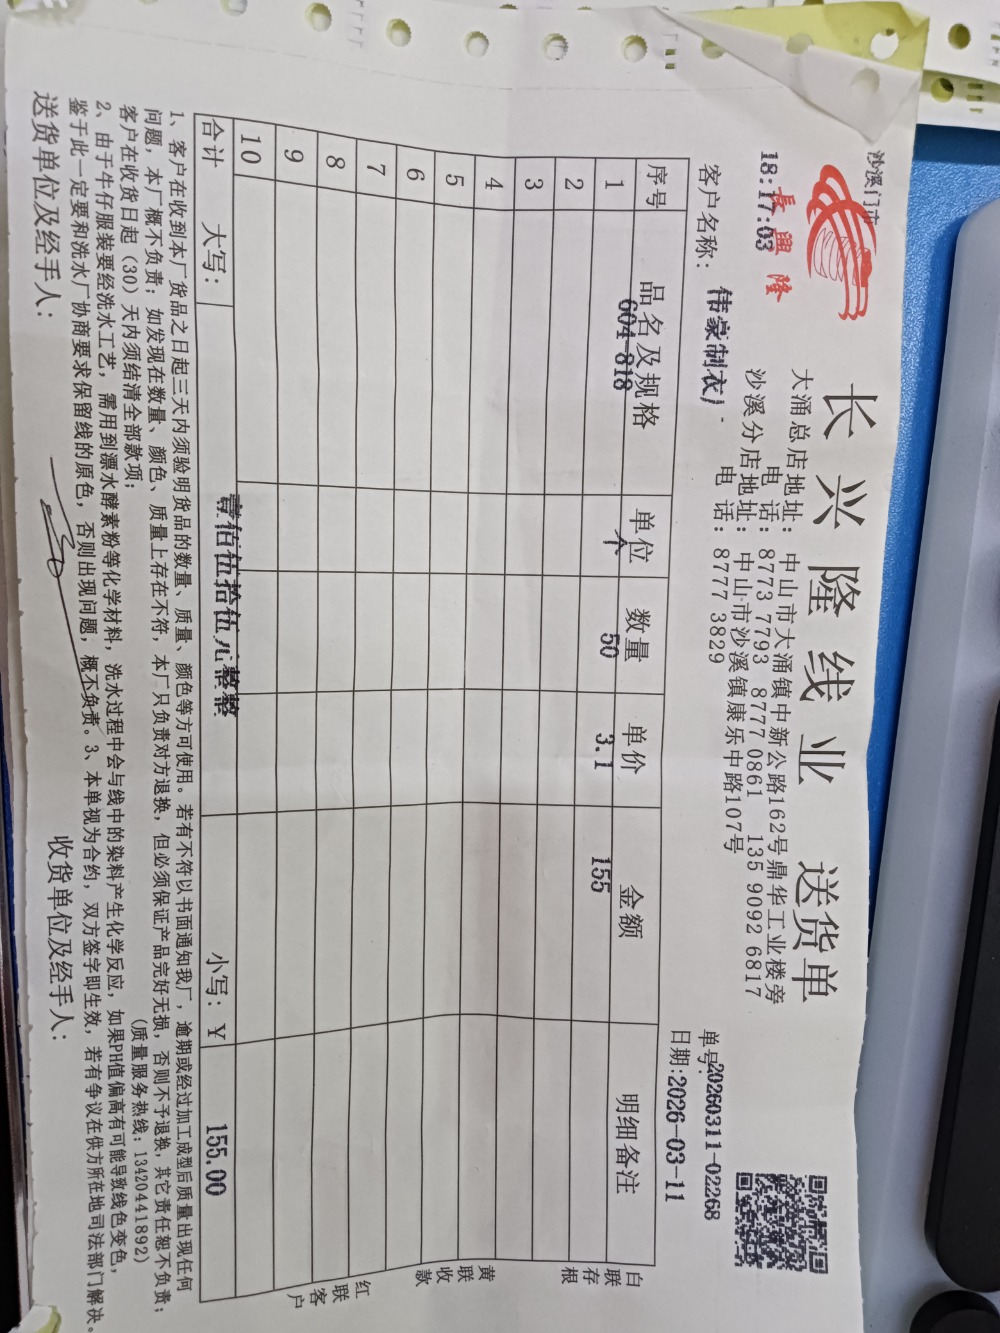 沙溪门市
18:17:03
長興隆
长兴隆线业 送货单
大涌总店地址：中山市大涌镇中新公路162号鼎华工业楼旁
电 话：8773 7793 8777 0861 135 9092 6817
沙溪分店地址：中山市沙溪镇康乐中路107号
电 话：8777 3829
单号:20260311-02268
客户名称：伟豪制衣厂
日期:2026-03-11
序号 品名及规格 单位 数量 单价 金额 明细备注
1 604-818 个 50 3.1 155
2
3
4
5
6
7
8
9
10
合计 大写： 壹佰伍拾伍元整整 小写：¥ 155.00
白联存根
黄联收款
红联客户
1、客户在收到本厂货品之日起三天内须验明货品的数量、质量、颜色等方可使用。若有不符以书面通知我厂，逾期或经过加工成型后质量出现任何
问题，本厂概不负责；如发现在数量、颜色、质量上存在不符，本厂只负责对方退换，但必须保证产品完好无损，否则不予退换，其它责任恕不负责；
客户在收货日起（30）天内须结清全部款项； （质量服务热线：13420441892）
2、由于牛仔服装要经洗水工艺，需用到漂水酵素粉等化学材料，洗水过程中会与线中的染料产生化学反应，如果PH值偏高有可能导致线色变色，
鉴于此一定要和洗水厂协商要求保留线的原色，否则出现问题，概不负责。3、本单视为合约，双方签字即生效，若有争议在供方所在地司法部门解决。
送货单位及经手人： 收货单位及经手人：